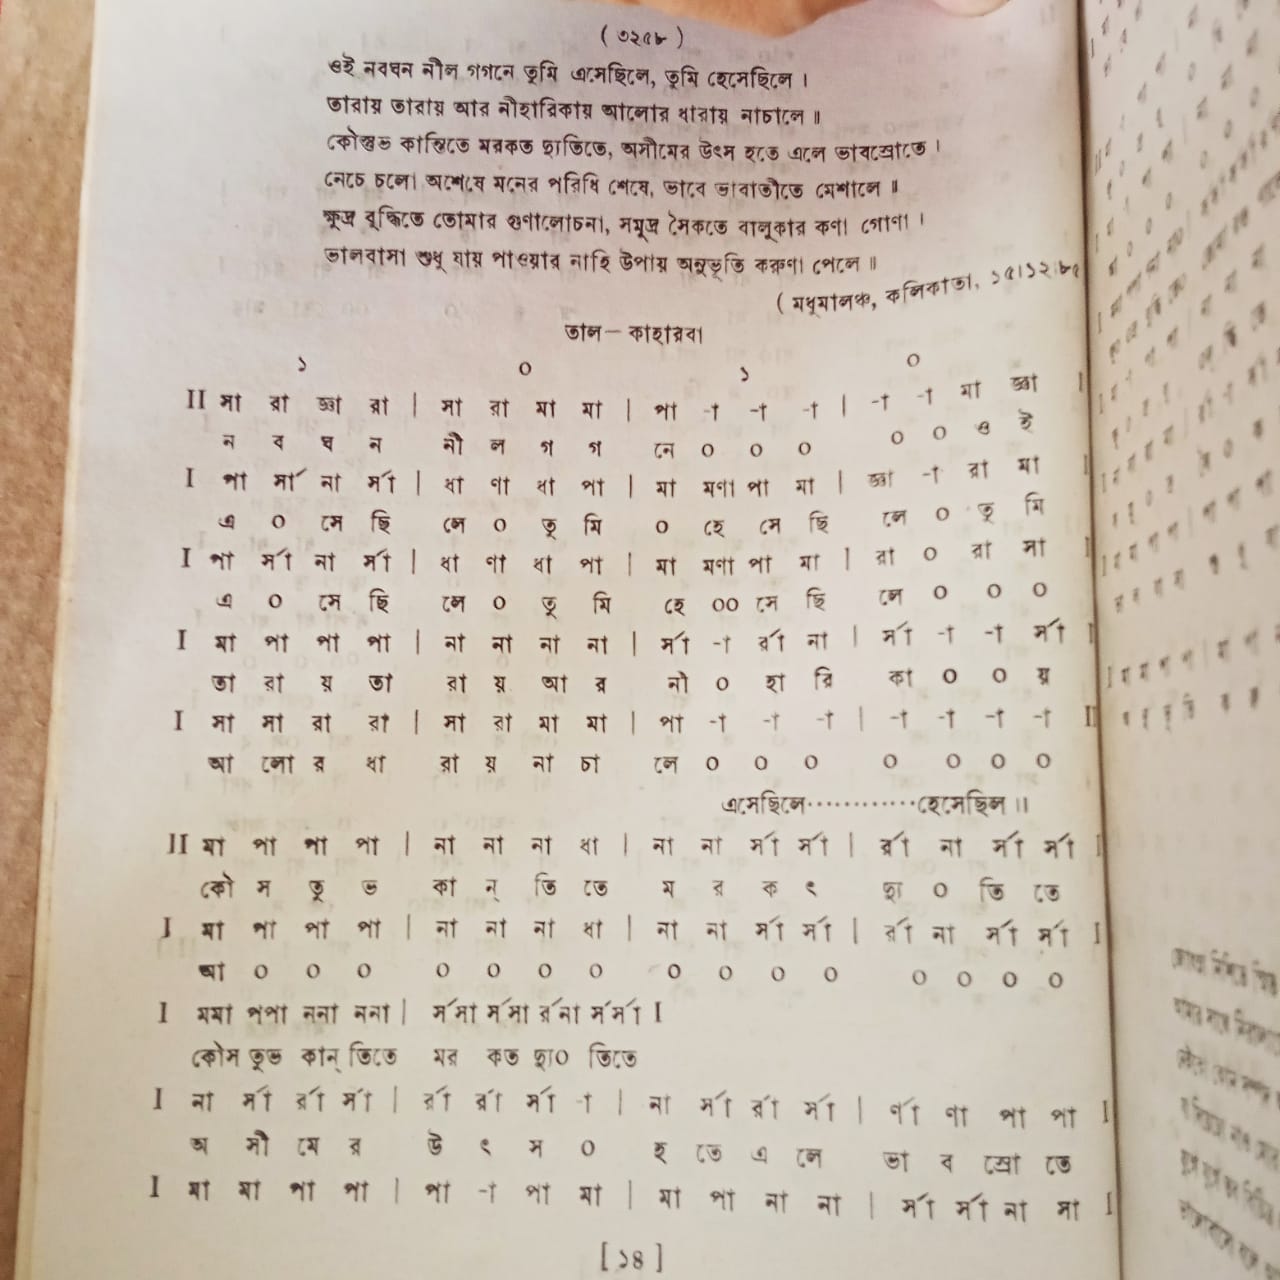 ( ৩২৫৮ )
ওই নবঘন নীল গগনে তুমি এসেছিলে, তুমি হেসেছিলে ।
তারায় তারায় আর নীহারিকায় আলোর ধারায় নাচালে ॥
কৌস্তুভ কান্তিতে মরকত দ্যুতিতে, অসীমের উৎস হতে এলে ভাবস্রোতে ।
নেচে চলো অশেষে মনের পরিধি শেষে, ভাবে ভাবাতীতে মেশালে ॥
ক্ষুদ্র বুদ্ধিতে তোমার গুণালোচনা, সমুদ্র সৈকতে বালুকার কণা গোণা ।
ভালবাসা শুধু যায় পাওয়ার নাহি উপায় অনুভূতি করুণা পেলে ॥
( মধুমালঞ্চ, কলিকাতা, ১৫।১২।৮৫
তাল — কাহারবা
১ ০ ১ ০
II সা রা জ্ঞা রা | সা রা মা মা | পা -া -া -া | -া -া মা জ্ঞা I
ন ব ঘ ন নী ল গ গ নে ০ ০ ০ ০ ০ ও ই
I পা র্সা না র্সা | ধা ণা ধা পা | মা মণা পা মা | জ্ঞা -া রা মা I
এ ০ সে ছি লে ০ তু মি ০ হে সে ছি লে ০ তু মি
I পা র্সা না র্সা | ধা ণা ধা পা | মা মণা পা মা | রা ০ রা সা I
এ ০ সে ছি লে ০ তু মি হে ০০ সে ছি লে ০ ০ ০
I মা পা পা পা | না না না না | র্সা -া র্রা না | র্সা -া -া র্সা I
তা রা য় তা রা য় আ র নী ০ হা রি কা ০ ০ য়
I সা সা রা রা | সা রা মা মা | পা -া -া -া | -া -া -া -া II
আ লো র ধা রা য় না চা লে ০ ০ ০ ০ ০ ০ ০
এসেছিলে············হেসেছিল ॥
II মা পা পা পা | না না না ধা | না না র্সা র্সা | র্রা না র্সা র্সা I
কৌ স তু ভ কা ন্ তি তে ম র ক ৎ দ্যু ০ তি তে
I মা পা পা পা | না না না ধা | না না র্সা র্সা | র্রা না র্সা র্সা I
আ ০ ০ ০ ০ ০ ০ ০ ০ ০ ০ ০ ০ ০ ০ ০
I মমা পপা ননা ননা | র্সর্সা র্সর্সা র্রনা র্সর্সা I
কৌস তুভ কান্ তিতে মর কত দ্যু০ তিতে
I না র্সা র্রা র্সা | র্রা র্রা র্সা -া | না র্সা র্রা র্সা | র্ণা ণা পা পা I
অ সী মে র উ ৎ স ০ হ তে এ লে ভা ব স্রো তে
I মা মা পা পা | পা -া পা মা | মা পা না না | র্সা র্সা না সা I
[ ১৪ ]